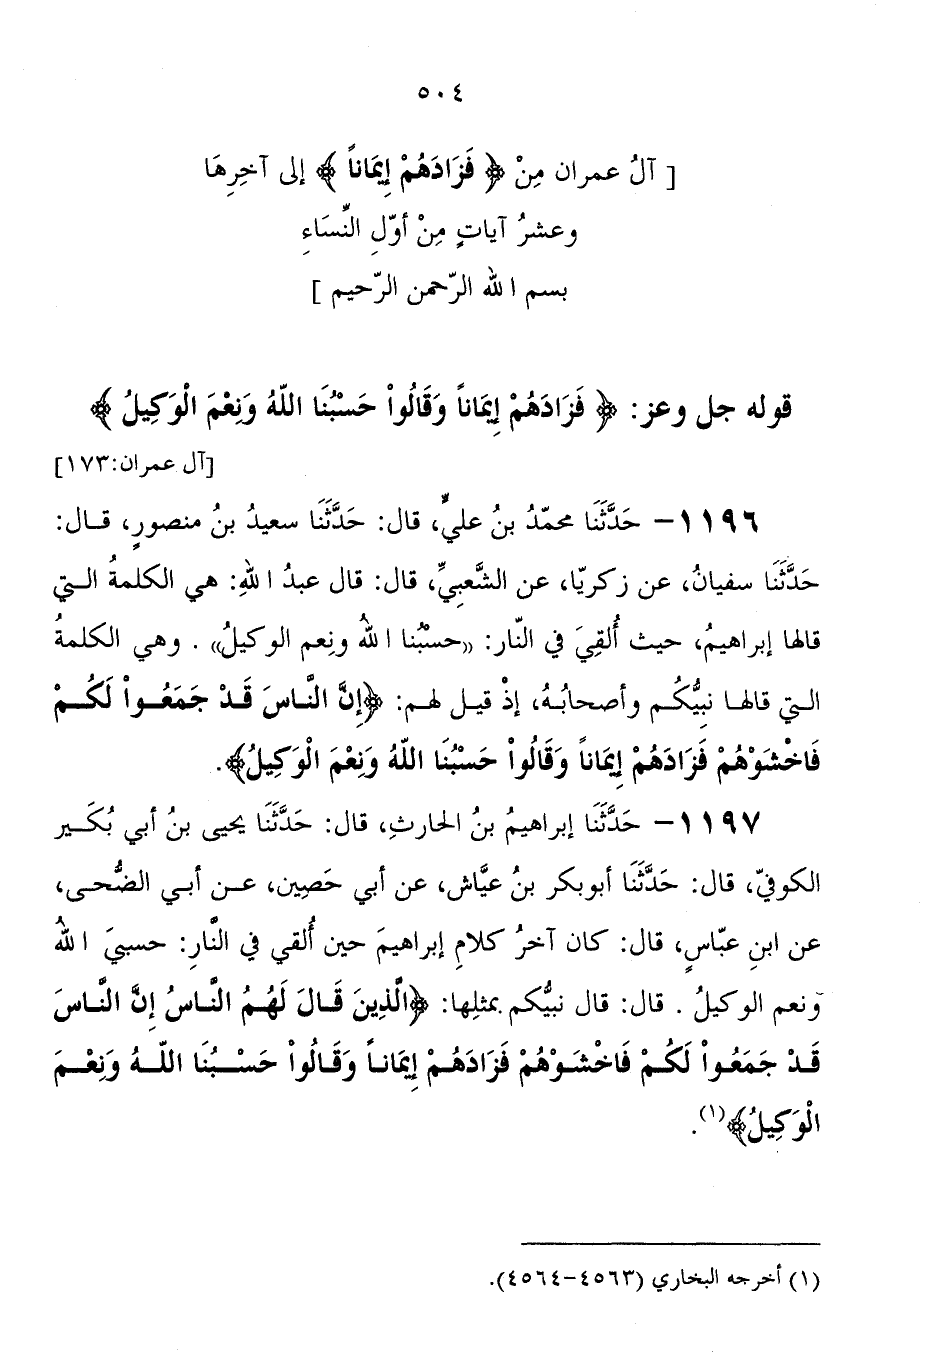 ٥٠٤
[ آلُ عمران مِنْ ﴿ فَزَادَهُمْ إِيمَاناً ﴾ إلى آخِرِهَا
وعشرُ آياتٍ مِنْ أوّلِ النِّسَاءِ
بسم الله الرّحمن الرّحيم ]
قوله جل وعز: ﴿ فَزَادَهُمْ إِيمَاناً وَقَالُواْ حَسْبُنَا اللّهُ وَنِعْمَ الْوَكِيلُ ﴾
[آل عمران:١٧٣]
١١٩٦- حَدَّثَنَا محمّدُ بنُ عليٍّ، قال: حَدَّثَنَا سعيدُ بنُ منصورٍ، قـال:
حَدَّثَنَا سفيانُ، عن زكريّا، عن الشَّعبيِّ، قال: قال عبدُ اللهِ: هي الكلمةُ الـتي
قالها إبراهيمُ، حيث أُلقِيَ في النّار: «حسْبُنا اللهُ ونِعم الوكيلُ» . وهي الكلمةُ
الـتي قالهـا نبِيُّكُـم وأصحابُـهُ، إذْ قيـل لهـم: ﴿إِنَّ النَّاسَ قَـدْ جَمَعُـواْ لَكُـمْ
فَاخْشَوْهُمْ فَزَادَهُمْ إِيمَاناً وَقَالُواْ حَسْبُنَا اللّهُ وَنِعْمَ الْوَكِيلُ﴾.
١١٩٧- حَدَّثَنَا إبراهيمُ بنُ الحارثِ، قال: حَدَّثَنَا يحيى بنُ أبي بُكَـير
الكوفيّ، قال: حَدَّثَنَا أبوبكر بنُ عيَّاش، عن أبي حَصِين، عـن أبـي الضُّحـى،
عن ابنِ عبّاسٍ، قال: كان آخرُ كلامِ إبراهيمَ حين أُلقي في النَّارِ: حسبيَ اللهُ
ونعم الوكيلُ . قال: قال نبيُّكم بمثلِها: ﴿الَّذِينَ قَـالَ لَهُـمُ النَّـاسُ إِنَّ النَّـاسَ
قَـدْ جَمَعُـواْ لَكُـمْ فَاخْشَـوْهُمْ فَزَادَهُـمْ إِيمَانـاً وَقَـالُواْ حَسْـبُنَا اللّـهُ وَنِعْـمَ
الْوَكِيلُ﴾(١).
(١) أخرجه البخاري (٤٥٦٣-٤٥٦٤).